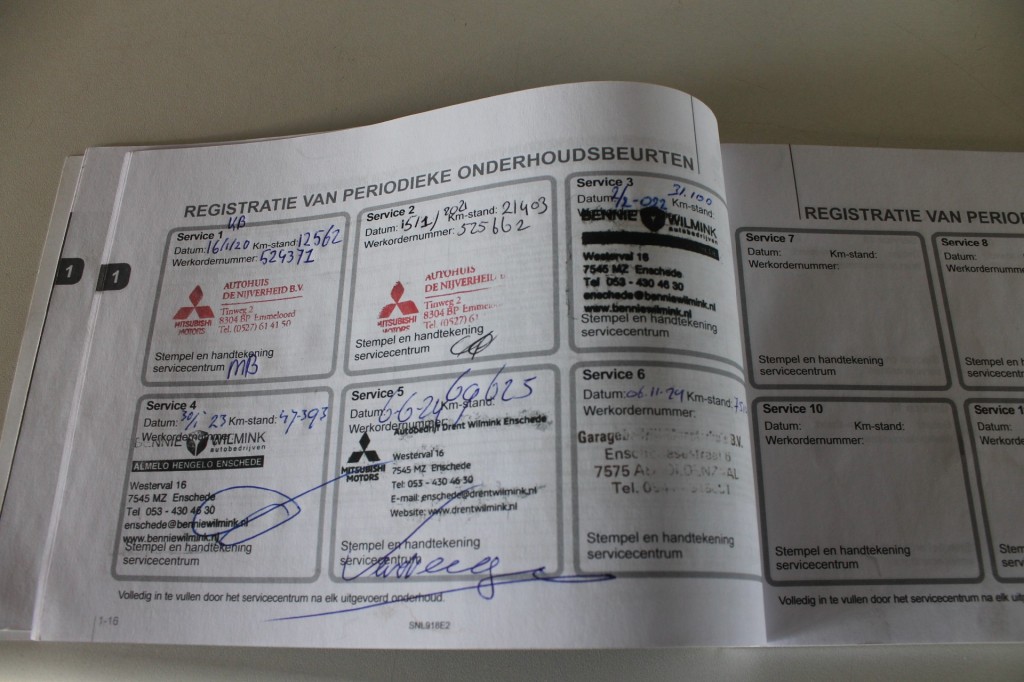 REGISTRATIE VAN PERIODIEKE ONDERHOUDSBEURTEN
Service 1
Datum: 16/11/20 Km-stand: 12562
Werkordernummer: 524371
MITSUBISHI MOTORS
AUTOHUIS
DE NIJVERHEID B.V.
Tinweg 2
8304 BP Emmeloord
Tel. (0527) 61 41 50
Stempel en handtekening
servicecentrum MB
Service 2
Datum: 15/1/2021 Km-stand: 21403
Werkordernummer: 525662
MITSUBISHI MOTORS
AUTOHUIS
DE NIJVERHEID
Tinweg 2
8304 BP Emmelo
Tel. (0527) 61
Stempel en handtekening
servicecentrum
Service 3
Datum: 2/2-022 31.100
BENNIE WILMINK
autobedrijven
Westerval 16
7545 MZ Enschede
Tel 053 - 430 46 30
enschede@benniewilmink.nl
www.benniewilmink.nl
Stempel en handtekening
servicecentrum
Service 4
Datum: 23 Km-stand: 47-393
Werkordernummer:
BENNIE WILMINK
autobedrijven
ALMELO HENGELO ENSCHEDE
Westerval 16
7545 MZ Enschede
Tel 053 - 430 46 30
enschede@benniewilmink.nl
www.benniewilmink.nl
Stempel en handtekening
servicecentrum
Service 5
Datum: 6-6-24 Km-stand: 60625
Werkordernummer:
Autobedrijf Drent Wilmink Enschede
MITSUBISHI MOTORS
Westerval 16
7545 MZ Enschede
Tel: 053 - 430 46 30
E-mail: enschede@drentwilmink.nl
Website: www.drentwilmink.nl
Stempel en handtekening
servicecentrum
Service 6
Datum: 06-11-24 Km-stand:
Werkordernummer:
Garage B.V.
7575 A
Tel.
Stempel en handtekening
servicecentrum
Volledig in te vullen door het servicecentrum na elk uitgevoerd onderhoud.
1-16
SNL916E2
1
1
REGISTRATIE VAN PERIOD
Service 7
Datum: Km-stand:
Werkordernummer:
Stempel en handtekening
servicecentrum
Service 8
Datum:
Werkordernummer:
Stempel en h
servicecentrum
Service 10
Datum: Km-stand:
Werkordernummer:
Stempel en handtekening
servicecentrum
Service 1
Datum:
Werkordern
Stempel en
servicecent
Volledig in te vullen door het servicecentrum na elk uit